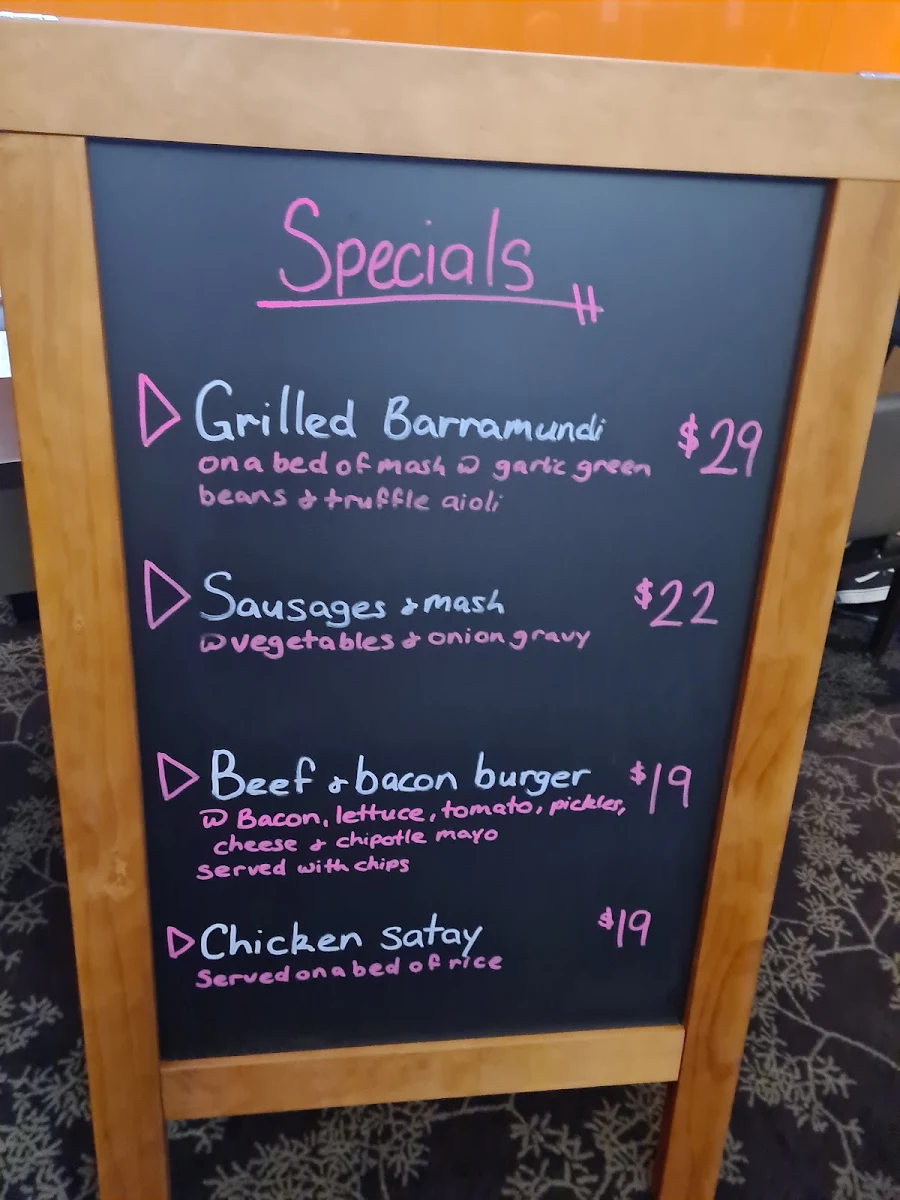 Specials
Grilled Barramundi $29
on a bed of mash w garlic green
beans & truffle aioli
Sausages & mash $22
w vegetables & onion gravy
Beef & bacon burger $19
w Bacon, lettuce, tomato, pickles,
cheese & chipotle mayo
served with chips
Chicken satay $19
Served on a bed of rice